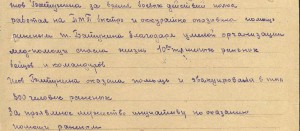 тов Батурина за время боевых действий полка
работая на БМП быстро и своевременно оказывала помощь
раненым т. Батурина благодаря умелой организации
мед-помощи спасла жизнь 10 раненым
бойцов и командиров
тов Батурина оказала помощь и эвакуировала в тыл
800 человек раненых
За проявленное мужество инициативу по оказанию
помощи раненым